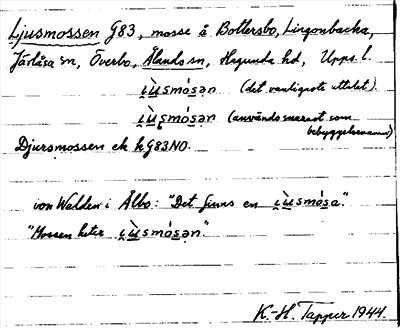 Ljusmossen G83, mosse å Bottersbo, Lingonbacka,
Järlåsa sn, Överbo, Ålands sn, Hagunda hd, Upps. l.
i̯ùsmósən (det vanligaste uttalet)
i̯ùsmósən (används snarast som
bebyggelsenamn)
Djursmossen ek h G83NO.
von Walden i Ålbo: "Det finns en i̯ùsmósa."
"Mossen heter i̯ùsmósən."
K.-H. Tapper 1944.